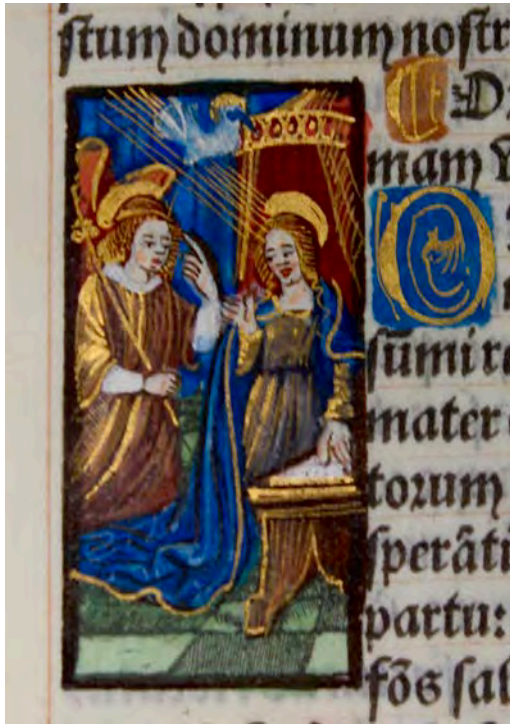 ſtum dominum noſtr
mam
O
ſūmi re
mater
torum
ſperāti
partu:
fōs ſal